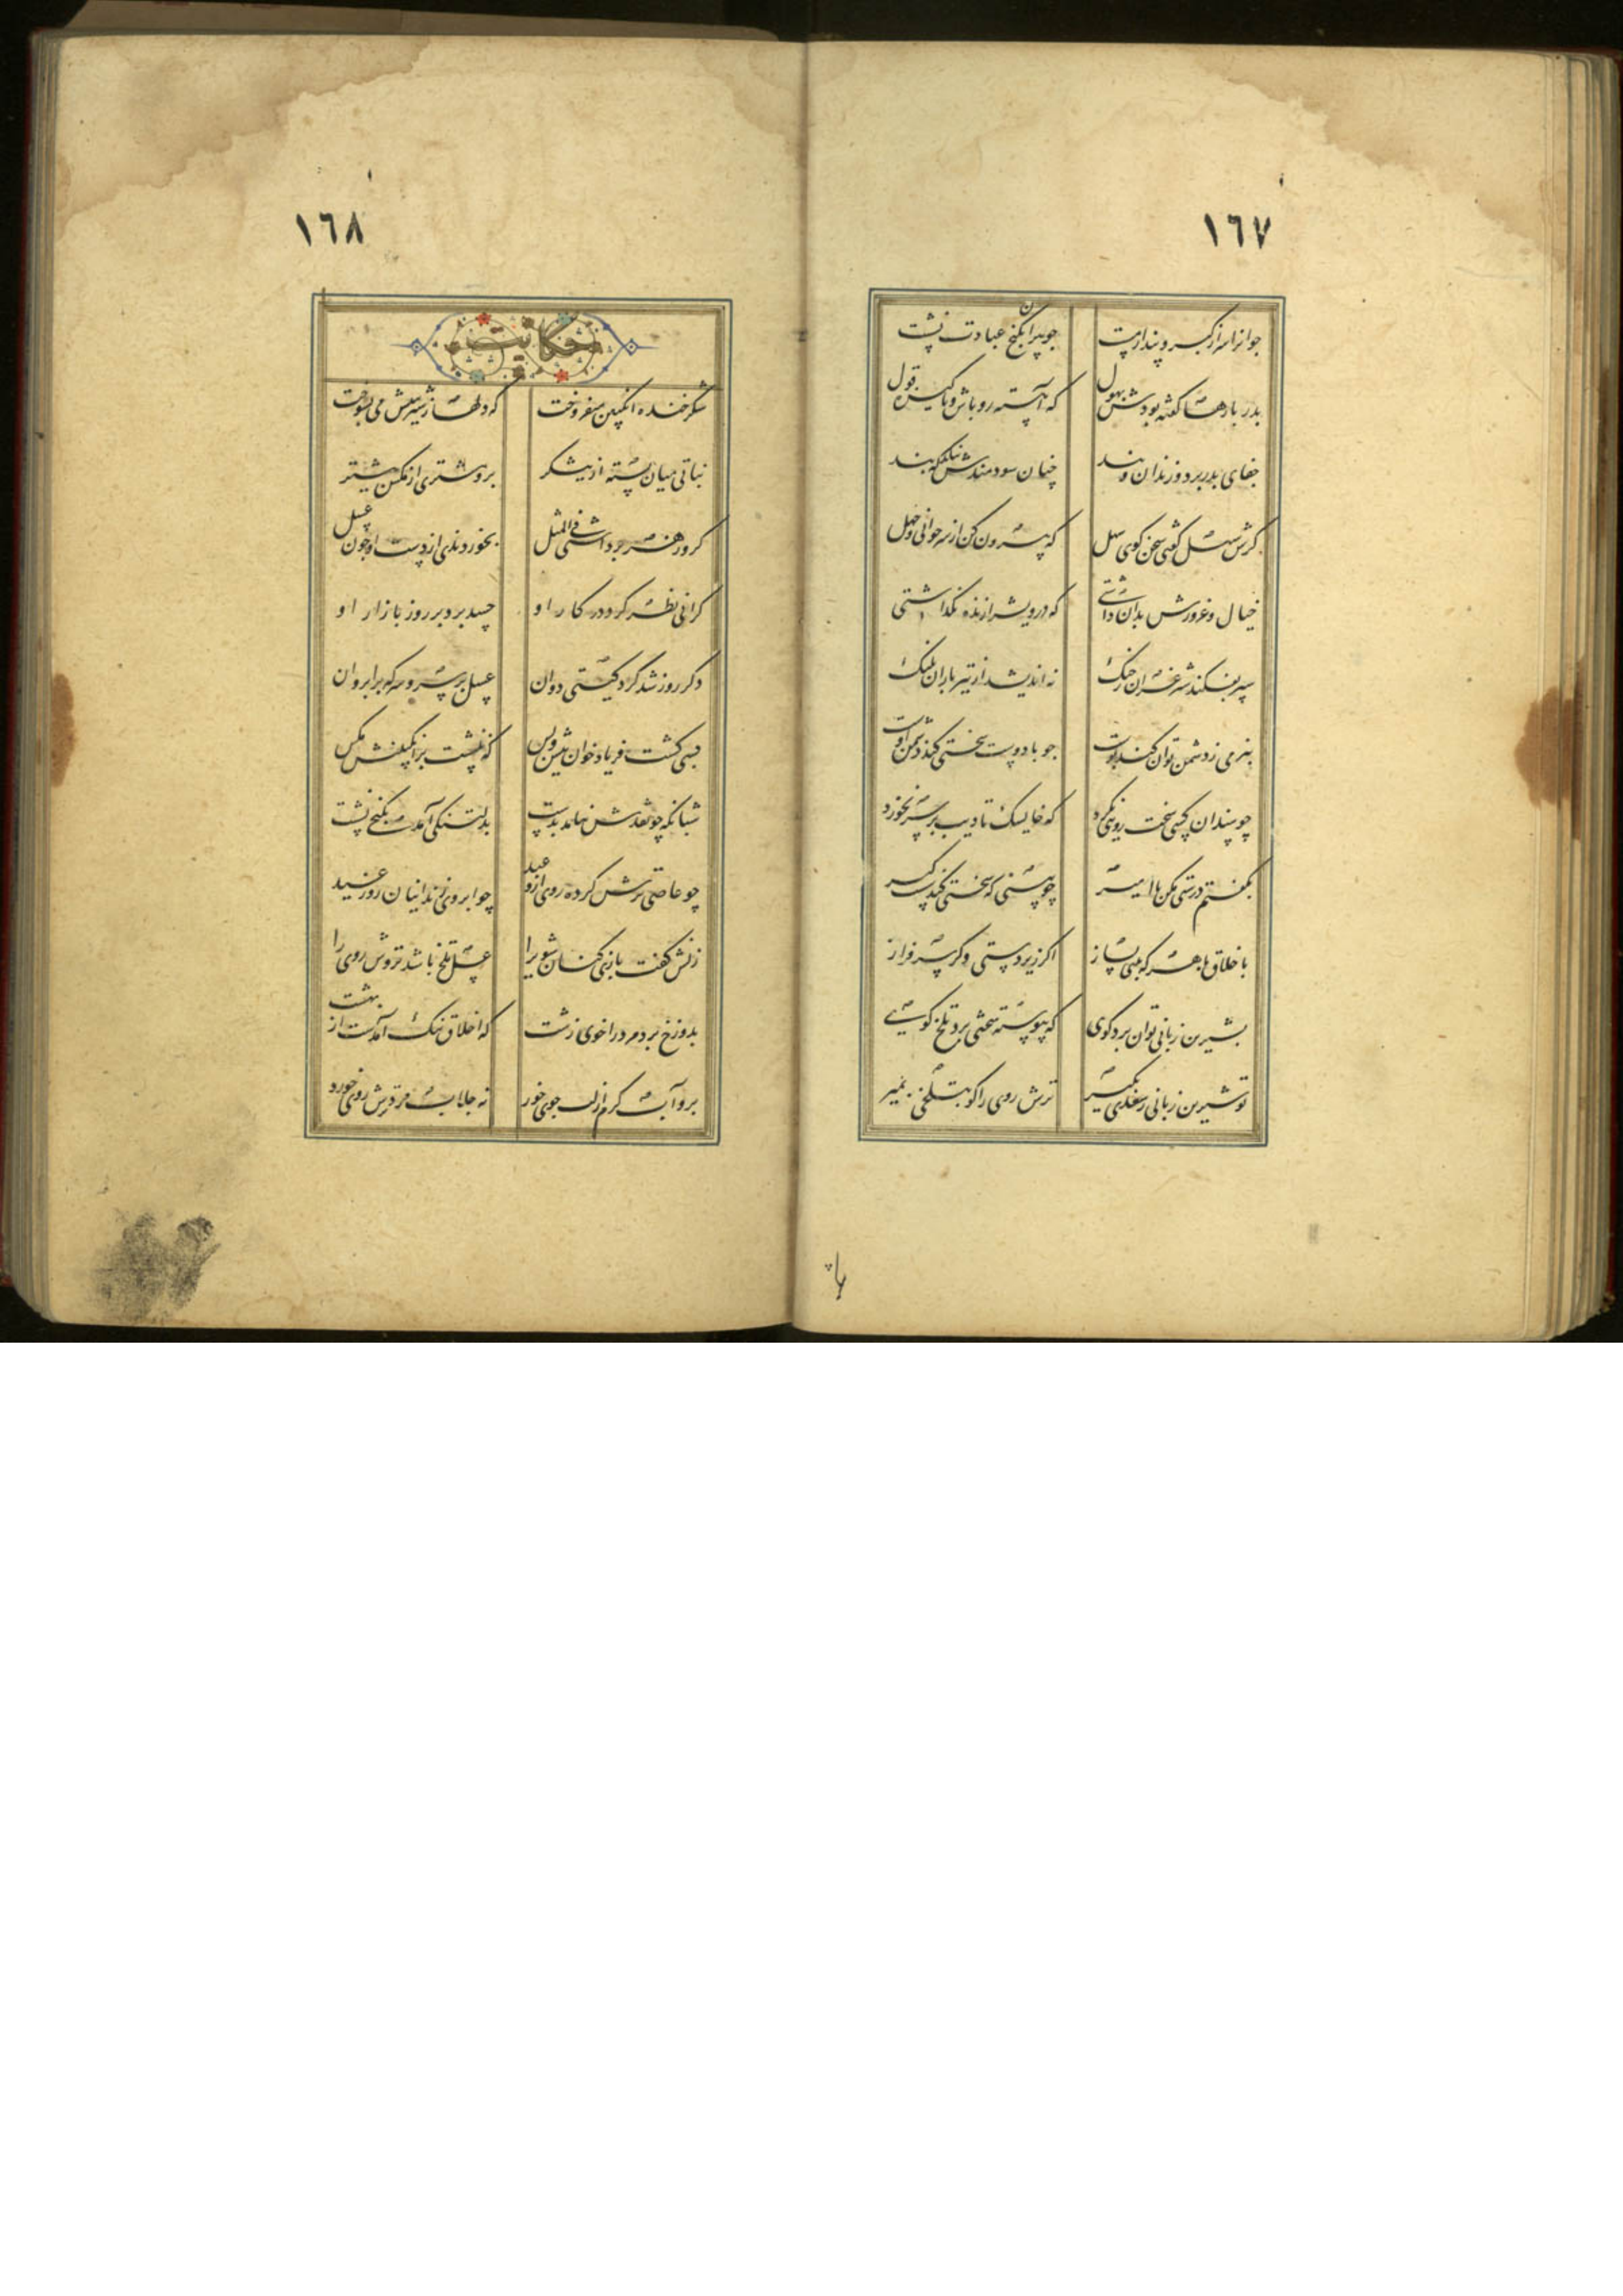 ١٦٧
جوانرا سر از کبر و پندار مست چو پیران بکنج عبادت نشست
پدر بارها گفته بودش بهول که آهسته رو باش و پاکیزه قول
جفای پدر برد و زندان و بند چنان سودمندش نیامد که پند
گرش سخت گفتی سخن گوی سهل که بیرون کن از سر جوانی و جهل
خیال و غرورش بدان داشتی که درویش را زنده نگذاشتی
سپر نفکند شیر غران ز جنگ نه اندیشد از تیر باران پلنگ
بنرمی ز دشمن توان کند پوست چو با دوست سختی کنی دشمن اوست
چو سندان کسی سخت رویی نکرد که خایسک تادیب بر سر نخورد
بگفتن درشتی مکن با امیر چو بینی که سختی کند سست گیر
باخلاق با هر که بینی بساز اگر زیر دستی و گر سر فراز
بشیرین زبانی توان برد گوی که پیوسته تلخی برد تلخ گوی
تو شیرین زبانی ز سعدی بگیر ترش روی را گو بتلخی بمیر
١٦٨
حکایت
شکر خنده انگبین میفروخت که دلها ز شیرینیش می بسوخت
نباتی میان بسته از نیشکر برو مشتری از مگس بیشتر
گر او زهر برداشتی فی المثل بخوردندی از دست او چون عسل
گرانی نظر کرد در کار او حسد برد بر روز بازار او
دگر روز شد گرد گیتی دوان عسل بر سر و سرکه بر ابروان
بسی گشت فریاد خوان پیش و پس که ننشست بر انگبینش مگس
شبانگه چو نقدش نیامد بدست بدلتنگی آمد بکنجی نشست
چو عاصی ترش کرده روی از وعید چو ابروی زندانیان روز عید
زنش گفت بازی کنان شوی را عسل تلخ باشد ترش روی را
بدوزخ برد مرد را خوی زشت که اخلاق نیک آمدست از بهشت
برو آب گرم از لب جوی خور نه جلاب سرد ترش روی خورد